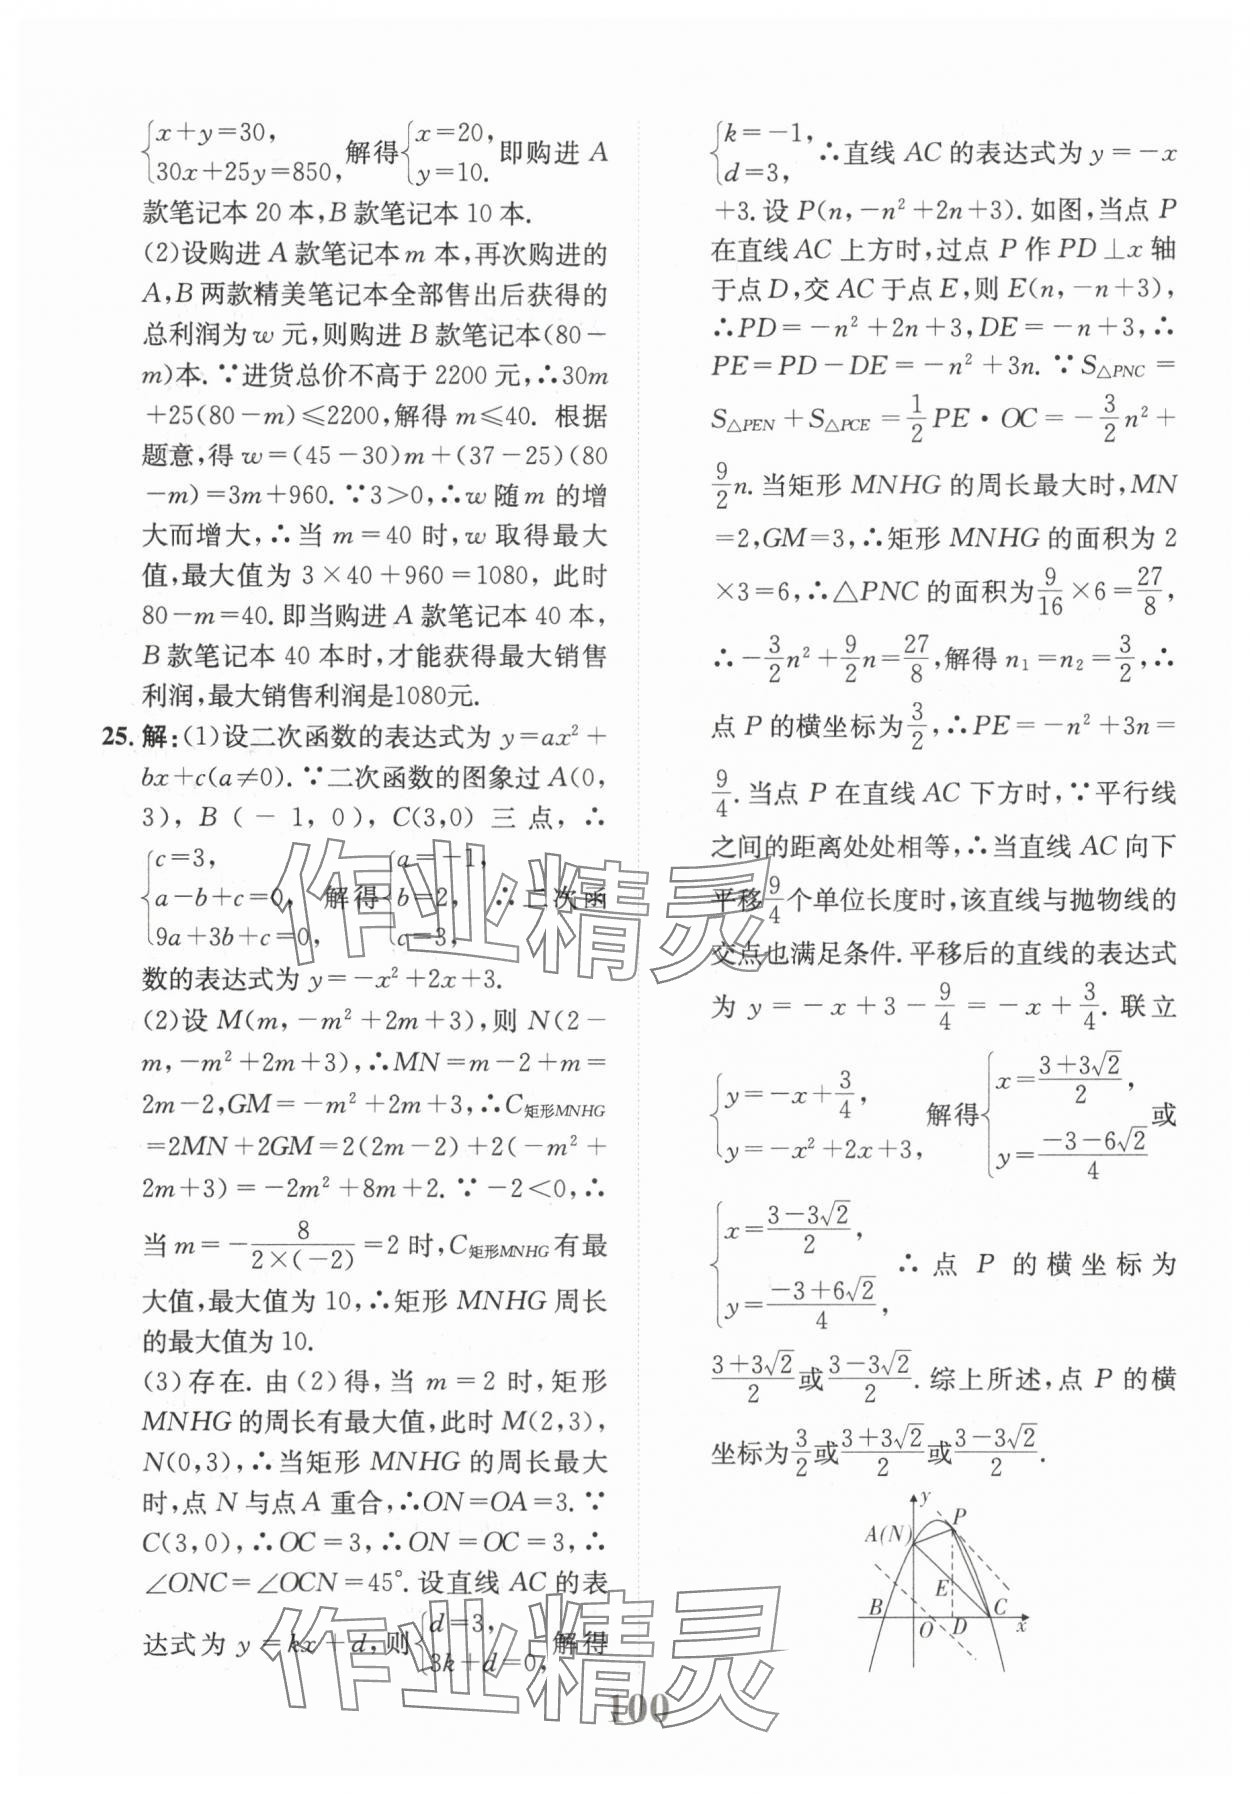 {x+y=30, 30x+25y=850, 解得{x=20, y=10. 即购进 A
款笔记本 20 本,B 款笔记本 10 本.
(2)设购进 A 款笔记本 m 本,再次购进的
A,B 两款精美笔记本全部售出后获得的
总利润为 w 元,则购进 B 款笔记本(80−
m)本. ∵进货总价不高于 2200 元,∴30m
+25(80−m)≤2200,解得 m≤40. 根据
题意,得 w=(45−30)m+(37−25)(80
−m)=3m+960. ∵3>0,∴w 随 m 的增
大而增大,∴当 m=40 时,w 取得最大
值,最大值为 3×40+960=1080, 此时
80−m=40. 即当购进 A 款笔记本 40 本,
B 款笔记本 40 本时,才能获得最大销售
利润,最大销售利润是1080元.
25. 解:(1)设二次函数的表达式为 y=ax²+
bx+c(a≠0). ∵二次函数的图象过 A(0,
3), B(−1, 0), C(3,0) 三点, ∴
{c=3, a−b+c=0, 9a+3b+c=0, 解得{a=−1, b=2, c=3, ∴二次函
数的表达式为 y=−x²+2x+3.
(2)设 M(m,−m²+2m+3),则 N(2−
m,−m²+2m+3),∴MN=m−2+m=
2m−2,GM=−m²+2m+3,∴C矩形MNHG
=2MN+2GM=2(2m−2)+2(−m²+
2m+3)=−2m²+8m+2. ∵−2<0,∴
当 m=−8/(2×(−2))=2 时,C矩形MNHG有最
大值,最大值为 10,∴矩形 MNHG 周长
的最大值为 10.
(3)存在. 由(2)得,当 m=2 时,矩形
MNHG 的周长有最大值,此时 M(2,3),
N(0,3),∴当矩形 MNHG 的周长最大
时,点 N 与点 A 重合,∴ON=OA=3. ∵
C(3,0),∴OC=3,∴ON=OC=3,∴
∠ONC=∠OCN=45°. 设直线 AC 的表
达式为 y=kx+d,则{d=3, 3k+d=0, 解得
{k=−1, d=3, ∴直线 AC 的表达式为 y=−x
+3. 设 P(n,−n²+2n+3). 如图,当点 P
在直线 AC 上方时,过点 P 作 PD⊥x 轴
于点 D,交 AC 于点 E,则 E(n,−n+3),
∴PD=−n²+2n+3,DE=−n+3,∴
PE=PD−DE=−n²+3n. ∵S△PNC=
S△PEN+S△PCE=1/2 PE·OC=−3/2 n²+
9/2 n. 当矩形 MNHG 的周长最大时,MN
=2,GM=3,∴矩形 MNHG 的面积为 2
×3=6,∴△PNC 的面积为 9/16×6=27/8,
∴−3/2 n²+9/2 n=27/8,解得 n₁=n₂=3/2,∴
点 P 的横坐标为 3/2,∴PE=−n²+3n=
9/4. 当点 P 在直线 AC 下方时,∵平行线
之间的距离处处相等,∴当直线 AC 向下
平移 9/4 个单位长度时,该直线与抛物线的
交点也满足条件. 平移后的直线的表达式
为 y=−x+3−9/4=−x+3/4. 联立
{y=−x+3/4, y=−x²+2x+3, 解得{x=(3+3√2)/2, y=(−3−6√2)/4 或
{x=(3−3√2)/2, y=(−3+6√2)/4, ∴点 P 的横坐标为
(3+3√2)/2 或 (3−3√2)/2. 综上所述,点 P 的横
坐标为 3/2 或 (3+3√2)/2 或 (3−3√2)/2.
y
A(N)
P
E
B
O
D
C
x
作业精灵
作业精灵
100